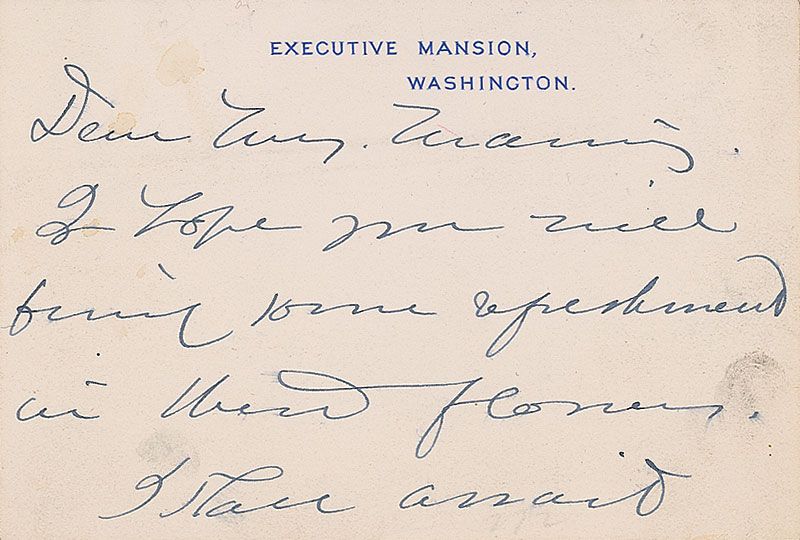 EXECUTIVE MANSION,
WASHINGTON.
Dear Mrs. Manning.
I hope you will
find some refreshment
in these flowers.
I shall await